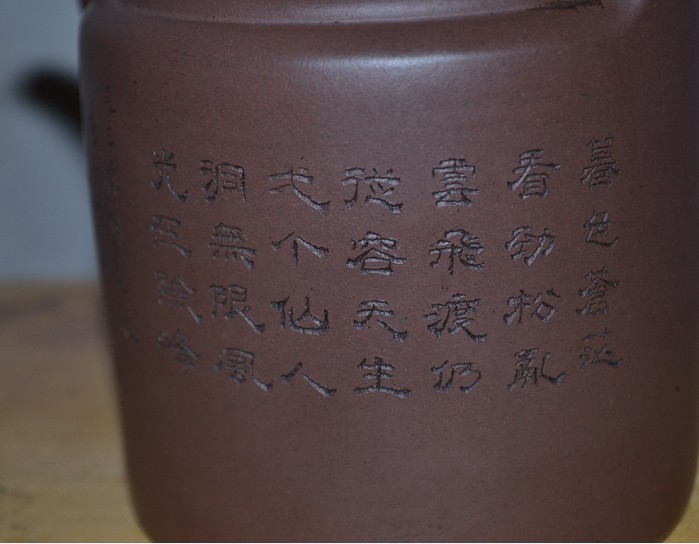 暮色蒼茫
看劲松亂
雲飛渡仍
從容天生
弌个仙人
洞無限風
光在險峰